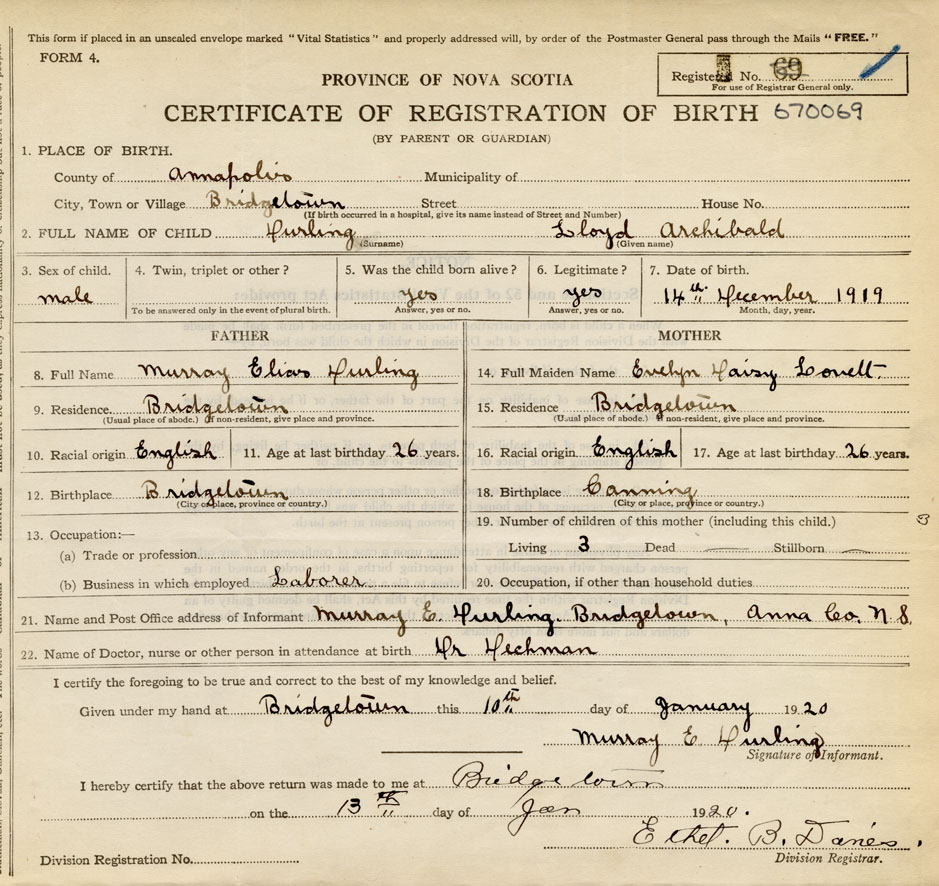 This form if placed in an unsealed envelope marked "Vital Statistics" and properly addressed will, by order of the Postmaster General pass through the Mails "FREE."
FORM 4.
PROVINCE OF NOVA SCOTIA
Registered No. 69
For use of Registrar General only.
CERTIFICATE OF REGISTRATION OF BIRTH 670069
(BY PARENT OR GUARDIAN)
1. PLACE OF BIRTH.
County of Annapolis Municipality of
City, Town or Village Bridgetown Street House No.
(If birth occurred in a hospital, give its name instead of Street and Number)
2. FULL NAME OF CHILD Durling Lloyd Archibald
(Surname) (Given name)
3. Sex of child. 4. Twin, triplet or other? 5. Was the child born alive? 6. Legitimate? 7. Date of birth.
male yes yes 14th December 1919
To be answered only in the event of plural birth. Answer, yes or no. Answer, yes or no. Month, day, year.
FATHER MOTHER
8. Full Name Murray Elias Durling 14. Full Maiden Name Evelyn Daisy Lovett
9. Residence Bridgetown 15. Residence Bridgetown
(Usual place of abode.) If non-resident, give place and province. (Usual place of abode.) If non-resident, give place and province.
10. Racial origin English 11. Age at last birthday 26 years. 16. Racial origin English 17. Age at last birthday 26 years.
12. Birthplace Bridgetown 18. Birthplace Canning
(City or place, province or country.) (City or place, province or country.)
13. Occupation:— 19. Number of children of this mother (including this child.)
(a) Trade or profession Living 3 Dead Stillborn
(b) Business in which employed Laborer 20. Occupation, if other than household duties
21. Name and Post Office address of Informant Murray E. Durling. Bridgetown, Anna Co. N S.
22. Name of Doctor, nurse or other person in attendance at birth Dr Dechman
I certify the foregoing to be true and correct to the best of my knowledge and belief.
Given under my hand at Bridgetown this 10th day of January 1920
Murray E Durling
Signature of Informant.
I hereby certify that the above return was made to me at Bridgetown
on the 13th day of Jan 1920.
Ethel. B.
Division Registration No. Division Registrar.